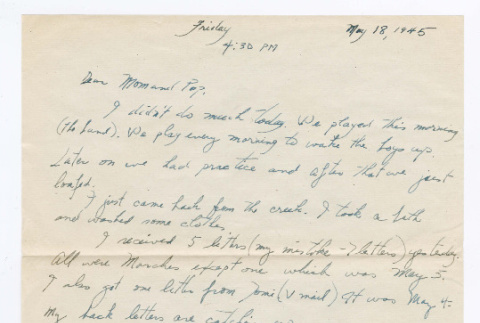 Friday May 18, 1945
4:30 PM
Dear Mom and Pop,
I didn't do much today. We played this morning
(the band). We play every morning to wake the boys up
Later on we had practice and after that we just
loafed.
I just came back from the creek. I took a bath
and washed some clothes.
I received 5 letters (my mistake - 7 letters) yesterday.
All were Marches except one which was May 5.
I also got one letter from Tomi (V mail) It was May 4.
My back letters are